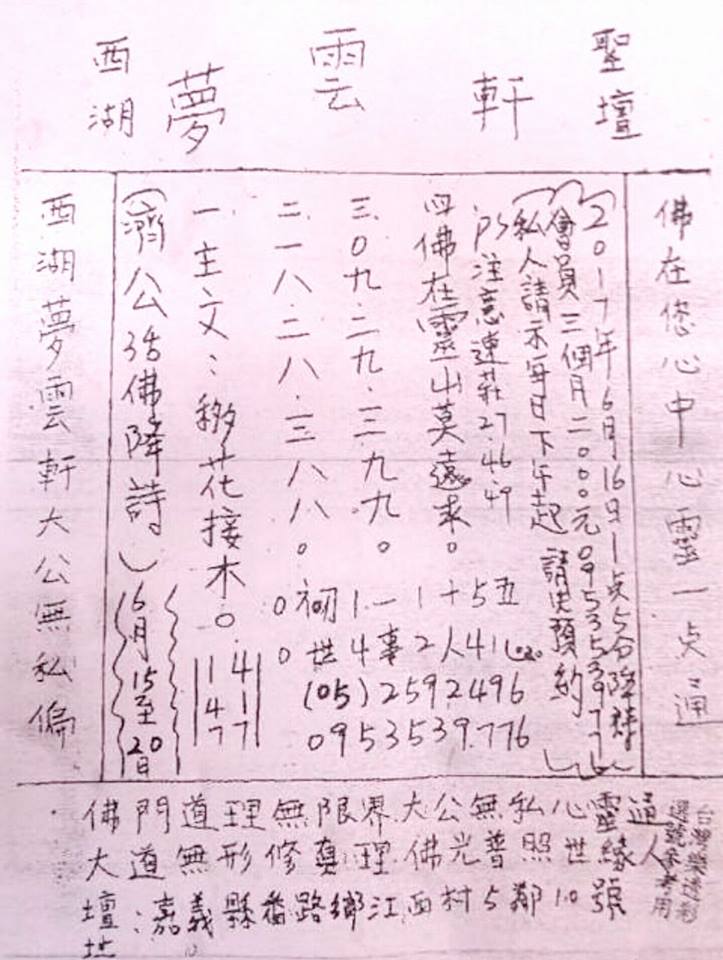 西湖 夢雲軒 聖壇
西湖夢雲軒大公無私偏
(濟公活佛降詩)
6月15至20日
一主文：移花接木。
147
417
二一八.二八.三八八。
三0九.二九.三九九。
四佛在靈山莫遠求。
PS注意連莊27.46.49
私人請示每日下午起 請先預約
會員三個月二000元0953539776
(2017年6月16日1点5分降詩)
佛在您心中心靈一点通
(05)2592496
0953539.776
佛門道理無限界大公無私心靈通
大道無形修真理佛光普照世緣人
壇地：嘉義縣番路鄉江西村5鄰10號
台灣樂透彩
選號參考用